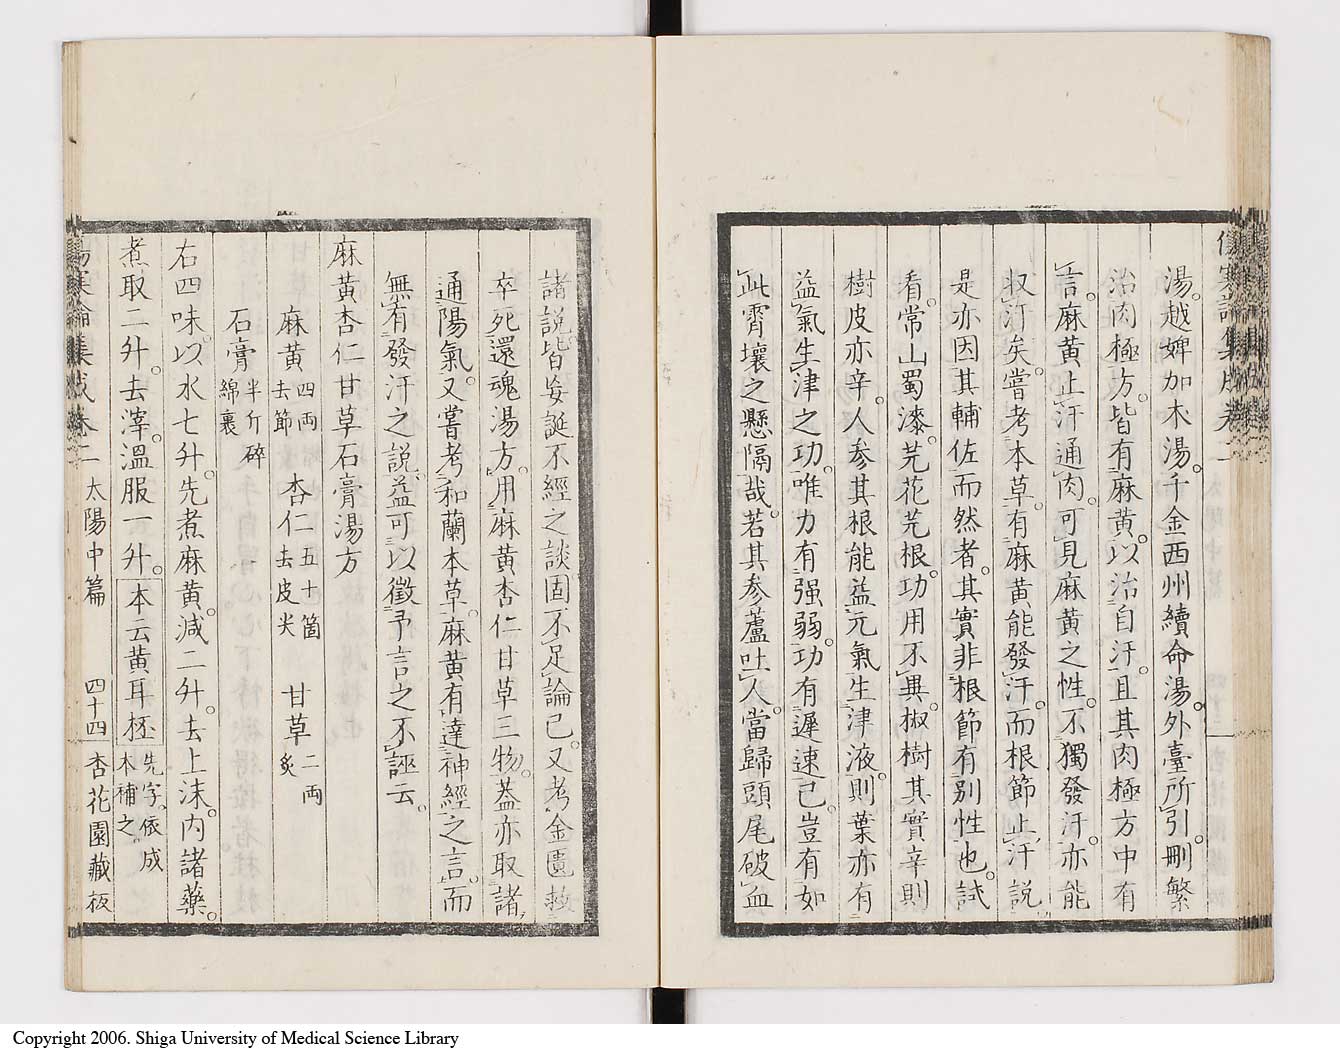 傷寒論集成卷二
湯。越婢加朮湯。千金西州續命湯。外臺所引刪繁
治肉極方。皆有麻黃。以治自汗。且其肉極方中有
言。麻黃止汗通肉。可見麻黃之性。不獨發汗。亦能
収汗矣。嘗考本草。有麻黃能發汗。而根節止汗說
是亦因其輔佐而然者。其實非根節有別性也。試
看。常山蜀漆。芫花芫根。功用不異。椒樹其實辛則
樹皮亦辛。人參其根能益元氣生津液。則葉亦有
益氣生津之功。唯力有强弱。功有遲速已。豈有如
此霄壤之懸隔哉。若其參蘆吐人。當歸頭尾破血
諸說。皆妄誕不經之談。固不足論已。又考金匱救
卒死還魂湯方。用麻黃杏仁甘草三物。蓋亦取諸
通陽氣。又嘗考和蘭本草。麻黃有達神經之言。而
無有發汗之說。益可以徵予言之不誣云。
麻黃杏仁甘草石膏湯方
麻黃四兩去節 杏仁五十箇去皮尖 甘草二兩炙
石膏半斤碎綿裹
右四味。以水七升。先煮麻黃。減二升。去上沫。内諸藥。
煮取二升。去滓。溫服一升。本云黃耳柸先字、依成本補之
傷寒論集成卷二 太陽中篇 四十四 杏花園藏板
Copyright 2006. Shiga University of Medical Science Library